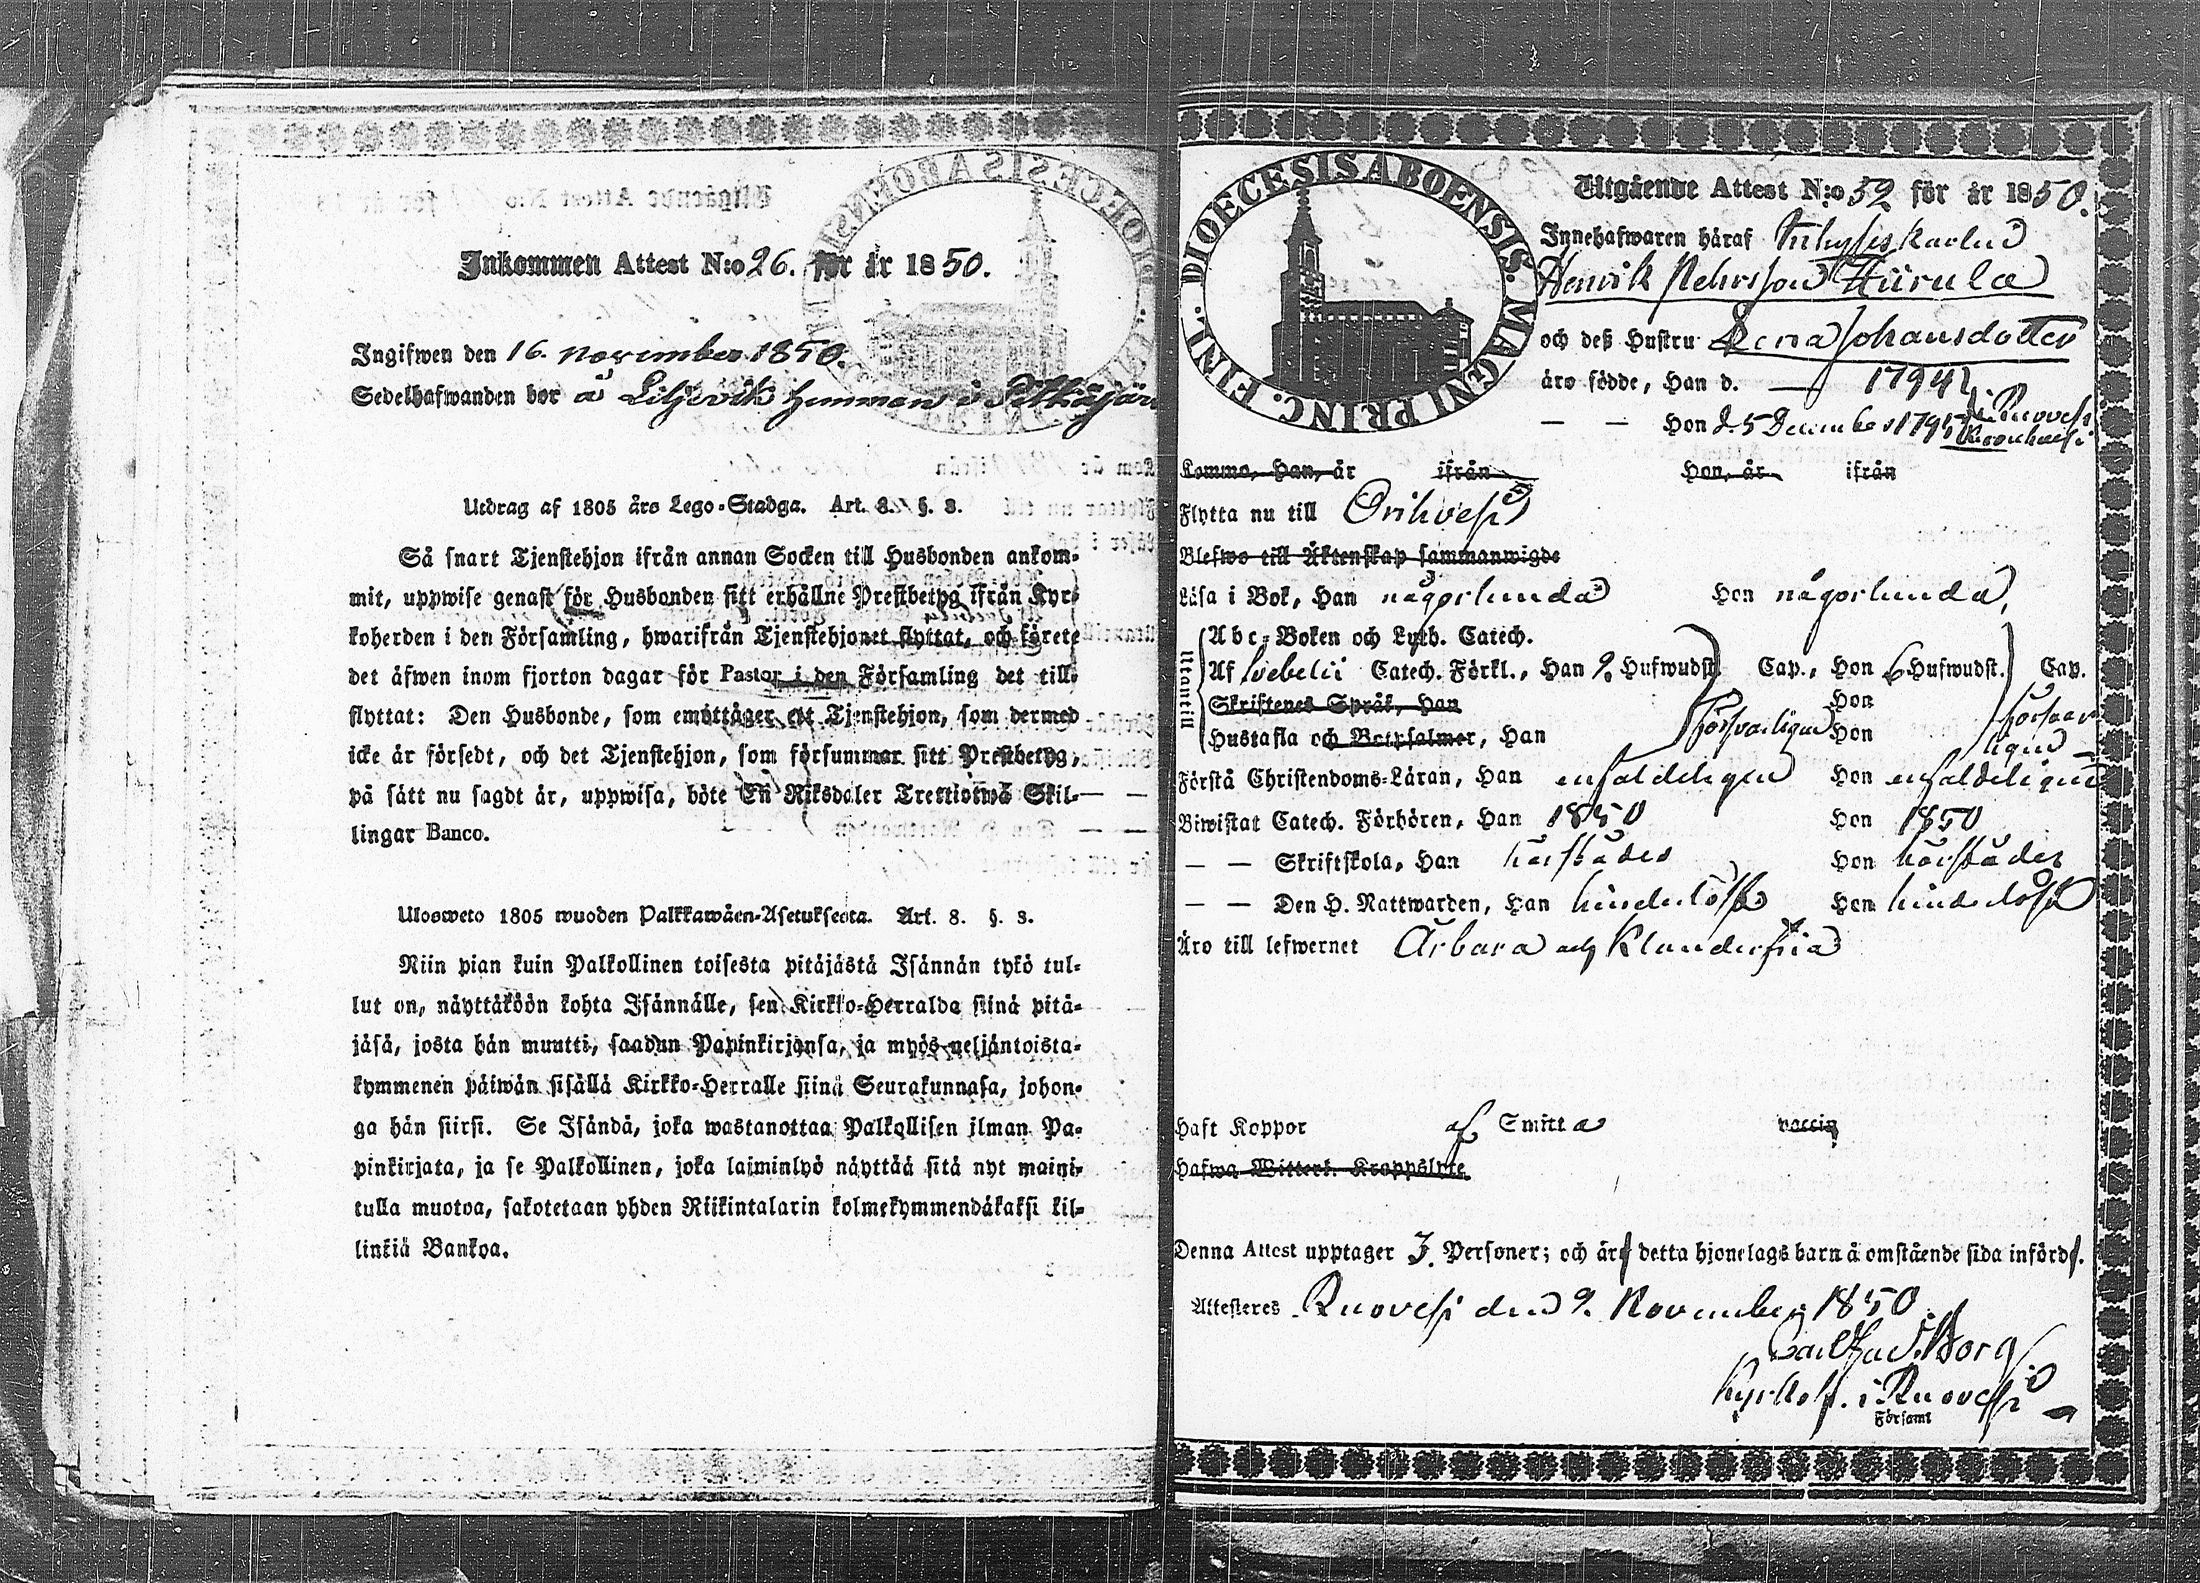 Inkommen Attest N:o 26. för år 1850.
Ingifwen den 16. november 1850.
Sedelhafwanden bor å Liljevik hemman i Pitkäjär
Utdrag af 1805 års Lego-Stadga. Art. 8. §. 3.
Så snart Tjenstehjon ifrån annan Socken till Husbonden ankom-
mit, uppwise genast för Husbonden sitt erhållne Prestbetyg ifrån Kyr-
koherden i den Församling, hwarifrån Tjenstehjonet flyttat, och förete
det äfwen inom fjorton dagar för Pastor i den Församling det till-
flyttat: Den Husbonde, som emottager ett Tjenstehjon, som dermed
icke är försedt, och det Tjenstehjon, som försummar sitt Prestbetyg,
på sätt nu sagdt är, uppwisa, böte En Riksdaler Trettiotwå Skil-
lingar Banco.
Ulosweto 1805 wuoden Palkkawäen-Asetuksesta. Art. 8. §. 3.
Niin pian kuin Palkollinen toisesta pitäjästä Isännän tykö tul-
lut on, näyttäköön kohta Isännälle, sen Kirkko-Herralda siinä pitä-
jäsä, josta hän muutti, saadun Papinkirjansa, ja myös neljäntoista-
kymmenen päiwän sisällä Kirkko-Herralle siinä Seurakunnasa, johon-
ga hän siirsi. Se Isändä, joka wastanottaa Palkollisen ilman Pa-
pinkirjata, ja se Palkollinen, joka laiminlyö näyttää sitä nyt maini-
tulla muotoa, sakotetaan yhden Riikintalarin kolmekymmendäkaksi kil-
linkiä Bankoa.
DIOECESIS ABOENSIS. MAGNI PRINC. FINL.
Utgående Attest N:o 52 för år 1850.
Innehafwaren häraf Inhyseskarlen
Henrik Mehrsson Hiirula
och deß Hustru Lena Johansdotter
äro födde, Han d. — 1794 i Ruovesi
— — Hon d. 5 December 1795 i Kuorehvesi
Komme, Han, år ifrån Hon, år ifrån
Flytta nu till Orihvesi
Blefwo till Äktenskap sammanwigde
Läsa i Bok, Han någorlunda Hon någorlunda,
Utantill
Abc-Boken och Luth. Catech.
Af Svebelii Catech. Förkl., Han 9. Hufwudst. Cap., Hon 6 Hufwudst. Cap.
Skriftenes Språk, Han Hon
Hustafla och Botpsalmer, Han försvarligen Hon försvar
ligen
Förstå Christendoms-Läran, Han enfaldeligen Hon enfaldeligen
Biwistat Catech. Förhören, Han 1850 Hon 1850
— — Skriftskola, Han härstädes Hon härstädes
— — Den H. Nattwarden, Han hinderlöst Hon hinderlöst
Äro till lefwernet Ärbara och Klanderfria
Haft Koppor af Smitta vaccin
Hafwa Witterl. Kroppslyte
Denna Attest upptager 3. Personer; och äro detta hjonelags barn å omstående sida införd.
Attesteres Ruovesi den 9. November 1850
Borg
i Ruovesi
Församl